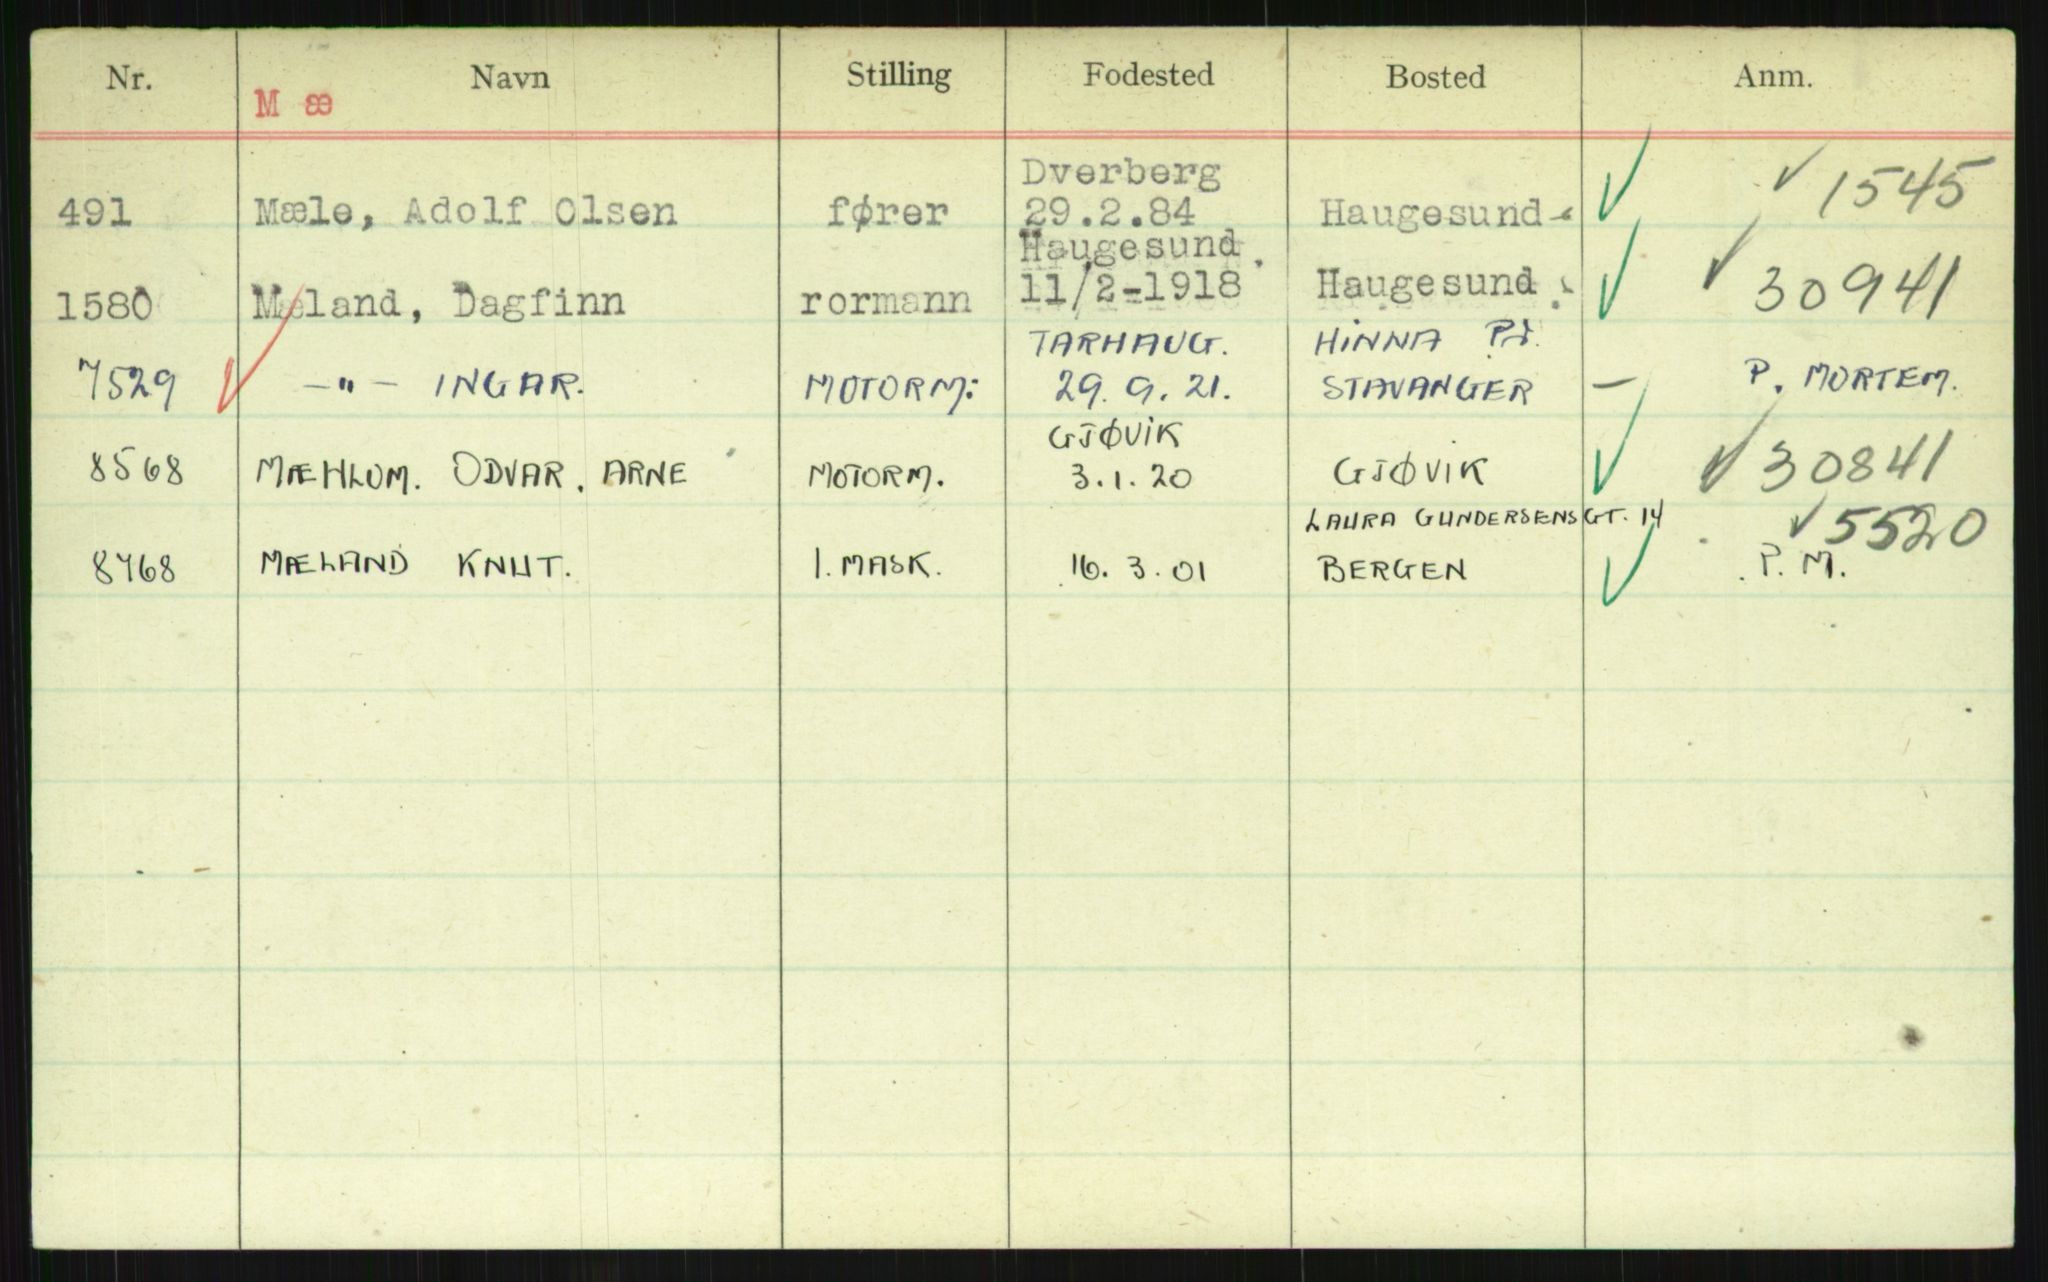 Nr. Navn Stilling Fodested Bosted Anm.
M æ
Dverberg
491 Mæle, Adolf Olsen fører 29.2.84 Haugesund 1545
Haugesund.
1580 Mæland, Dagfinn rormann 11/2-1918 Haugesund. 30941
TARHAUG. HINNA
7529 -"- INGAR. MOTORM: 29. 9. 21. STAVANGER - P. MORTEM.
GJØVIK
8568 MÆHLUM. ODVAR. ARNE MOTORM. 3.1.20 GJØVIK 30841
LAURA GUNDERSENSGT. 14 5520
8768 MÆLAND KNUT. 1. MASK. 16. 3. 01 BERGEN P. M.